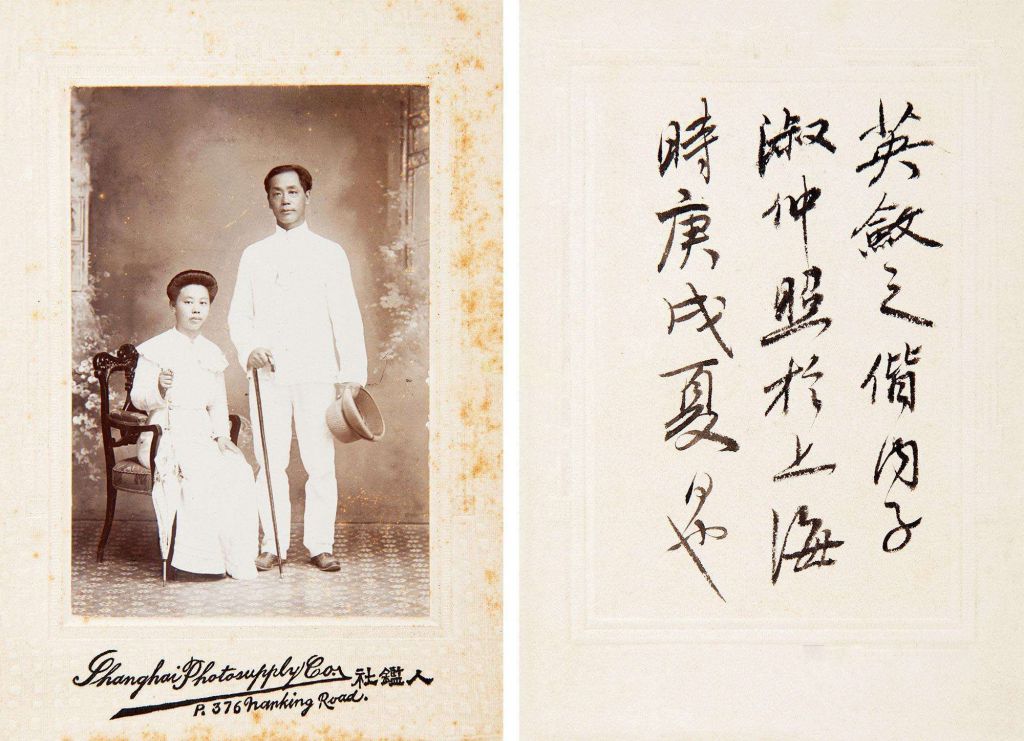 Shanghai Photosupply Co. 人鑑社
P. 376 Nanking Road.
英斂之偕内子
淑仲照於上海
時庚戌夏日也